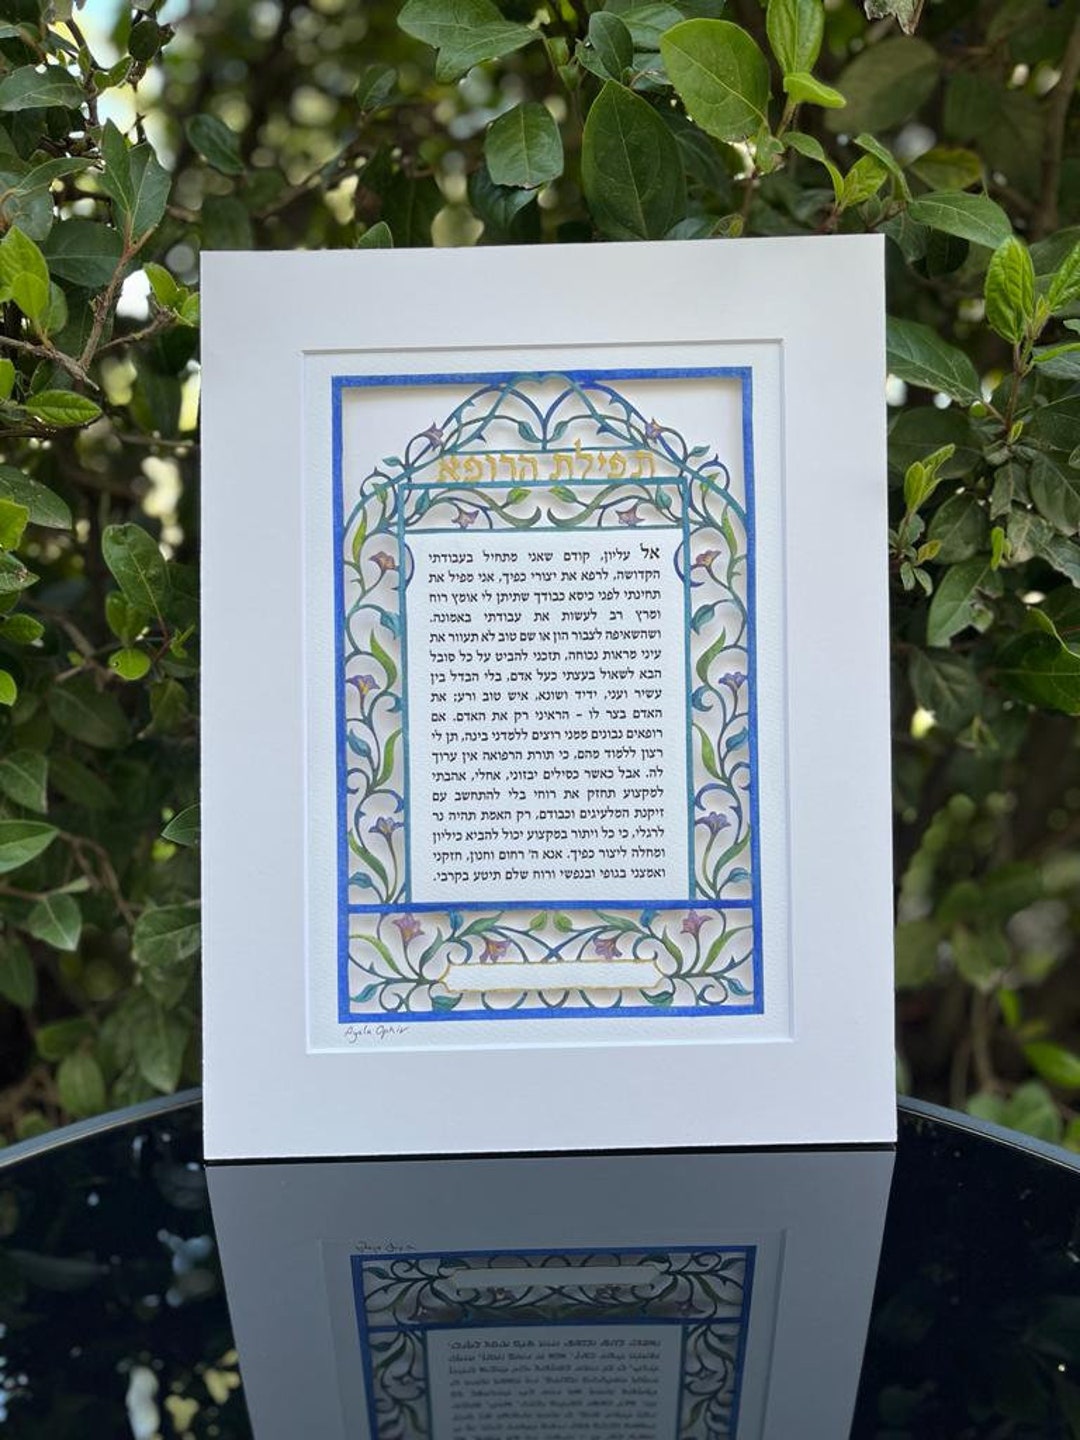 תפילת הרופא
אל עליון, קודם שאני מתחיל בעבודתי
הקדושה, לרפא את יצורי כפיך, אני מפיל את
תחינתי לפני כיסא כבודך שתיתן לי אומץ רוח
ומרץ רב לעשות את עבודתי באמונה.
ושהשאיפה לצבור הון או שם טוב לא תעוור את
עיני מראות נכוחה, תזכני להביט על כל סובל
הבא לשאול בעצתי כעל אדם, בלי הבדל בין
עשיר ועני, ידיד ושונא, איש טוב ורע; את
האדם בצר לו – הראיני רק את האדם. אם
רופאים נבונים ממני רוצים ללמדני בינה, תן לי
רצון ללמוד מהם, כי תורת הרפואה אין ערוך
לה. אבל כאשר כסילים יבזוני, אחלי, אהבתי
למקצוע תחזק את רוחי בלי להתחשב עם
זיקנת המלעיגים וכבודם, רק האמת תהיה נר
לרגלי, כי כל ויתור במקצוע יכול להביא כיליון
ומחלה ליצור כפיך. אנא ה' רחום וחנון, חזקני
ואמצני בגופי ובנפשי ורוח שלם תיטע בקרבי.
Ayala Ophir